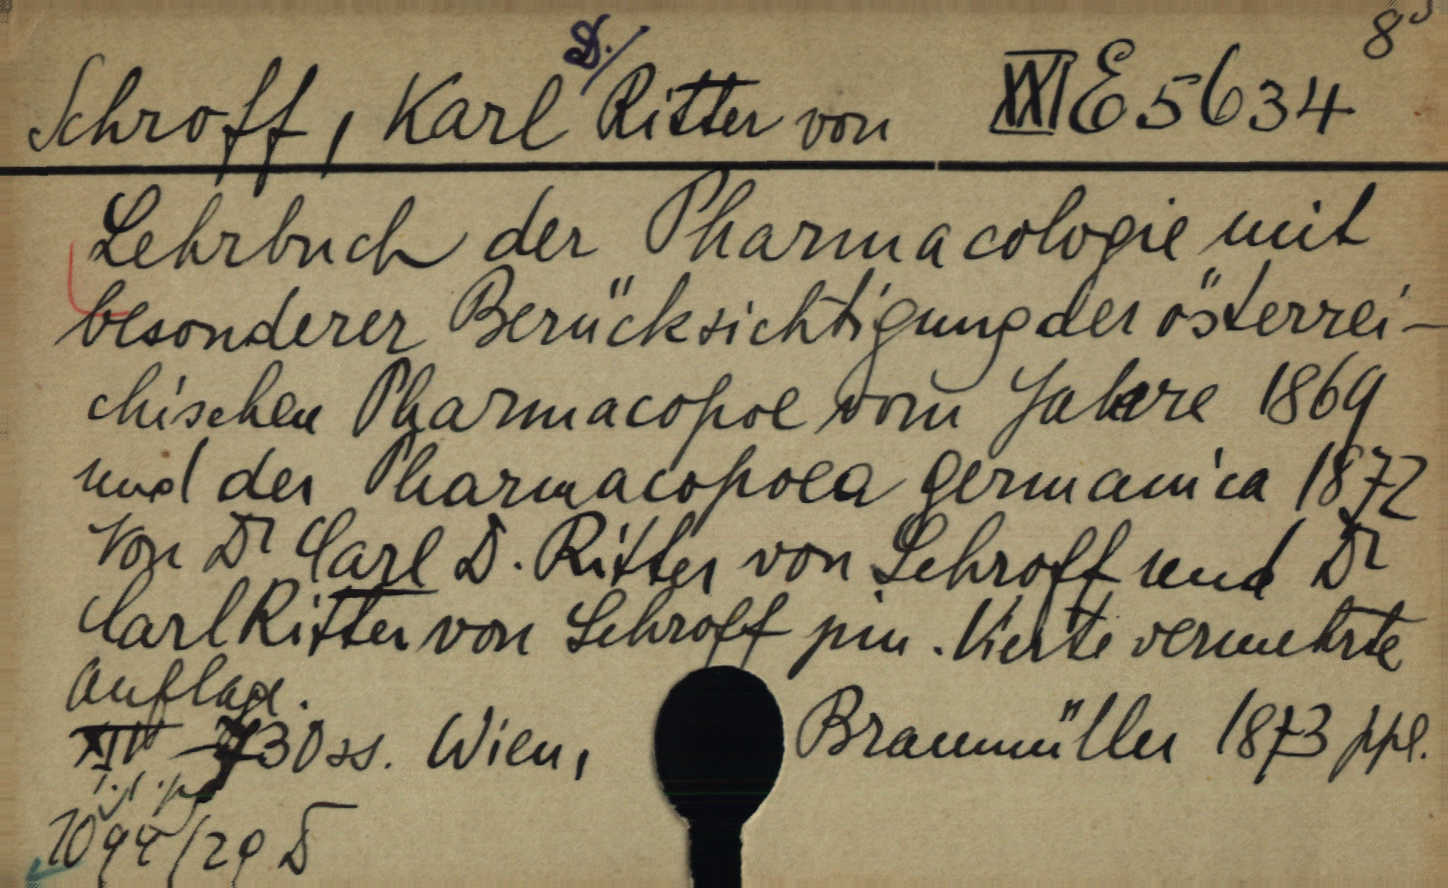 8°
Schroff, Karl D. Ritter von XXI E 5634
Lehrbuch der Pharmacologie mit
besonderer Berücksichtigung der österrei-
chischen Pharmacopoe vom Jahre 1869
und der Pharmacopoea germanica 1872
Von Dr Carl D. Ritter von Schroff und Dr
Carl Ritter von Schroff jun. Vierte vermehrte
Auflage.
XIV 730 ss. Wien, Braumüller 1873 ppl.
1094/29 D